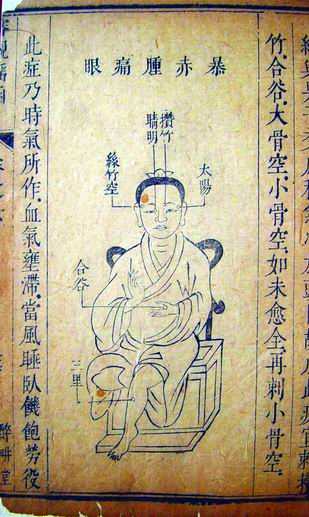 竹合谷大骨空小骨空如未愈全再刺小骨空
暴赤腫痛眼
攢竹
睛明
太陽
絲竹空
合谷
三里
此症乃時氣所作血氣壅滯當風睡臥饑飽勞役
醉耕堂